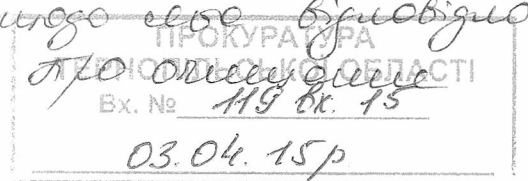 щодо мене відповідно
ПРОКУРАТУРА
про очищення
ТЕРНОПІЛЬСЬКОЇ ОБЛАСТІ
Вх. № 119 вх. 15
03.04.15р